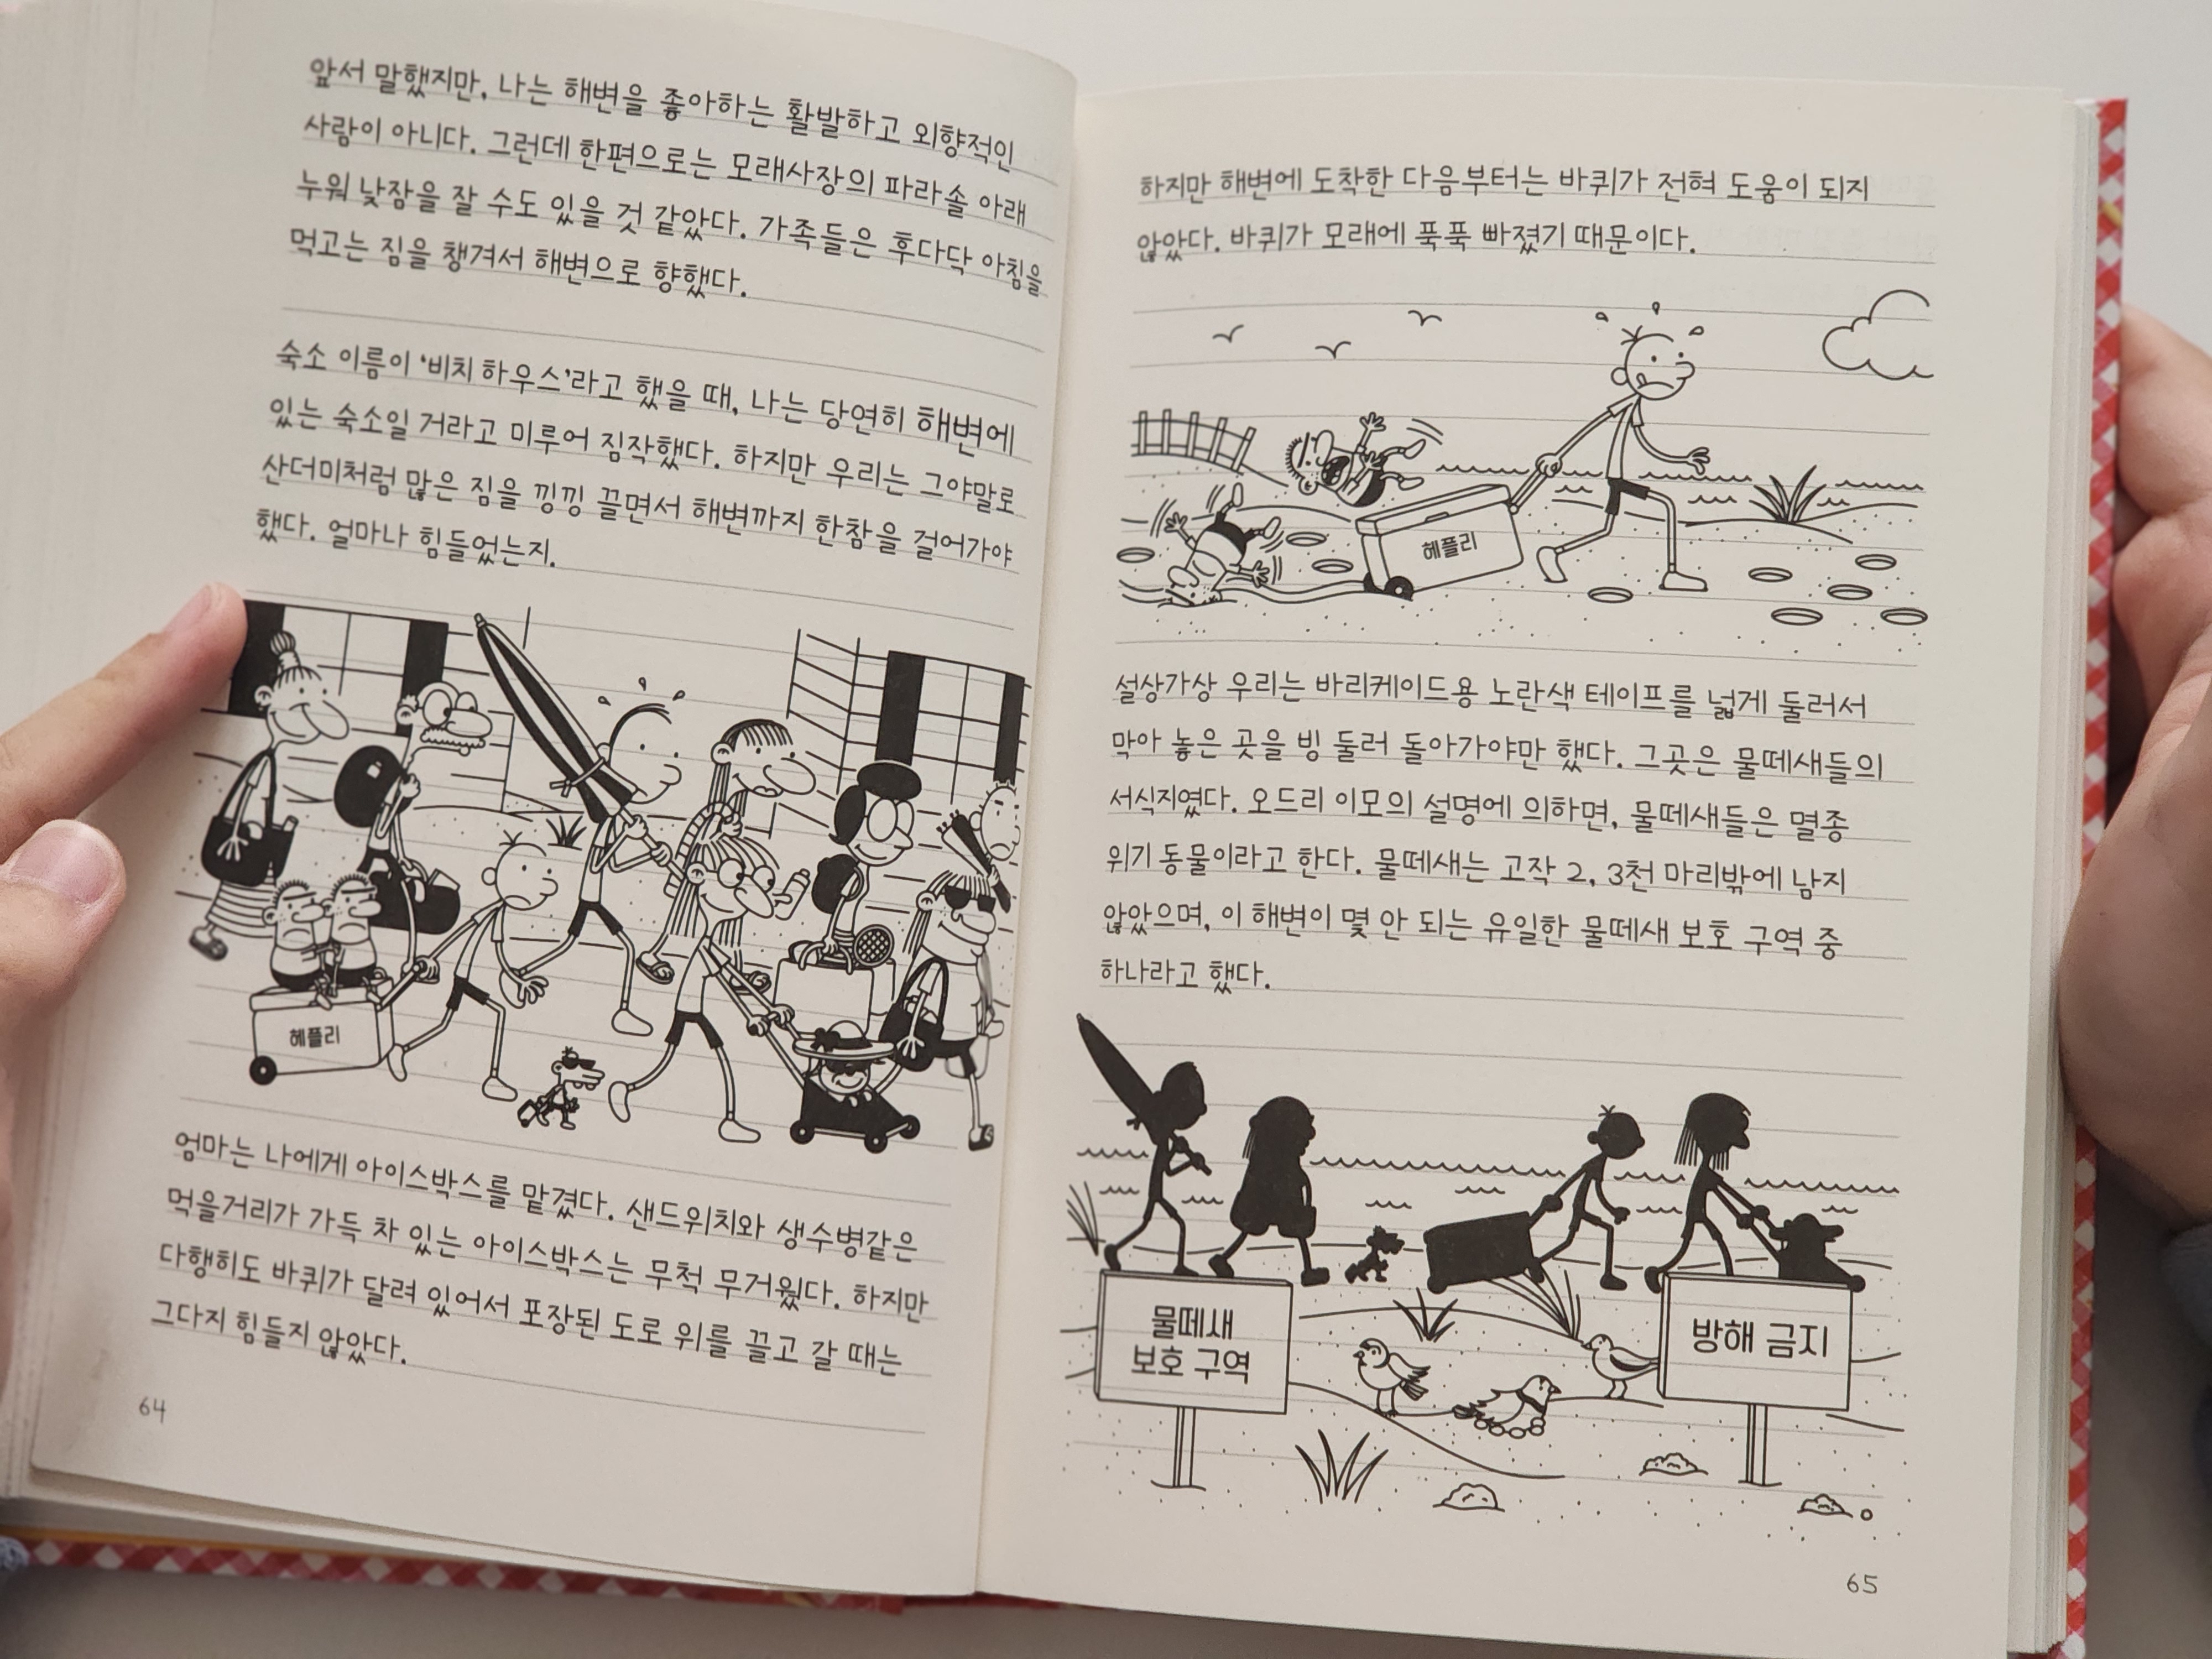 앞서 말했지만, 나는 해변을 좋아하는 활발하고 외향적인
사람이 아니다. 그런데 한편으로는 모래사장의 파라솔 아래
누워 낮잠을 잘 수도 있을 것 같았다. 가족들은 후다닥 아침을
먹고는 짐을 챙겨서 해변으로 향했다.
숙소 이름이 ‘비치 하우스’라고 했을 때, 나는 당연히 해변에
있는 숙소일 거라고 미루어 짐작했다. 하지만 우리는 그야말로
산더미처럼 많은 짐을 낑낑 끌면서 해변까지 한참을 걸어가야
했다. 얼마나 힘들었는지.
헤플리
엄마는 나에게 아이스박스를 맡겼다. 샌드위치와 생수병같은
먹을거리가 가득 차 있는 아이스박스는 무척 무거웠다. 하지만
다행히도 바퀴가 달려 있어서 포장된 도로 위를 끌고 갈 때는
그다지 힘들지 않았다.
64
하지만 해변에 도착한 다음부터는 바퀴가 전혀 도움이 되지
않았다. 바퀴가 모래에 푹푹 빠졌기 때문이다.
헤플리
설상가상 우리는 바리케이드용 노란색 테이프를 넓게 둘러서
막아 놓은 곳을 빙 둘러 돌아가야만 했다. 그곳은 물떼새들의
서식지였다. 오드리 이모의 설명에 의하면, 물떼새들은 멸종
위기 동물이라고 한다. 물떼새는 고작 2, 3천 마리밖에 남지
않았으며, 이 해변이 몇 안 되는 유일한 물떼새 보호 구역 중
하나라고 했다.
물떼새
보호 구역
방해 금지
65